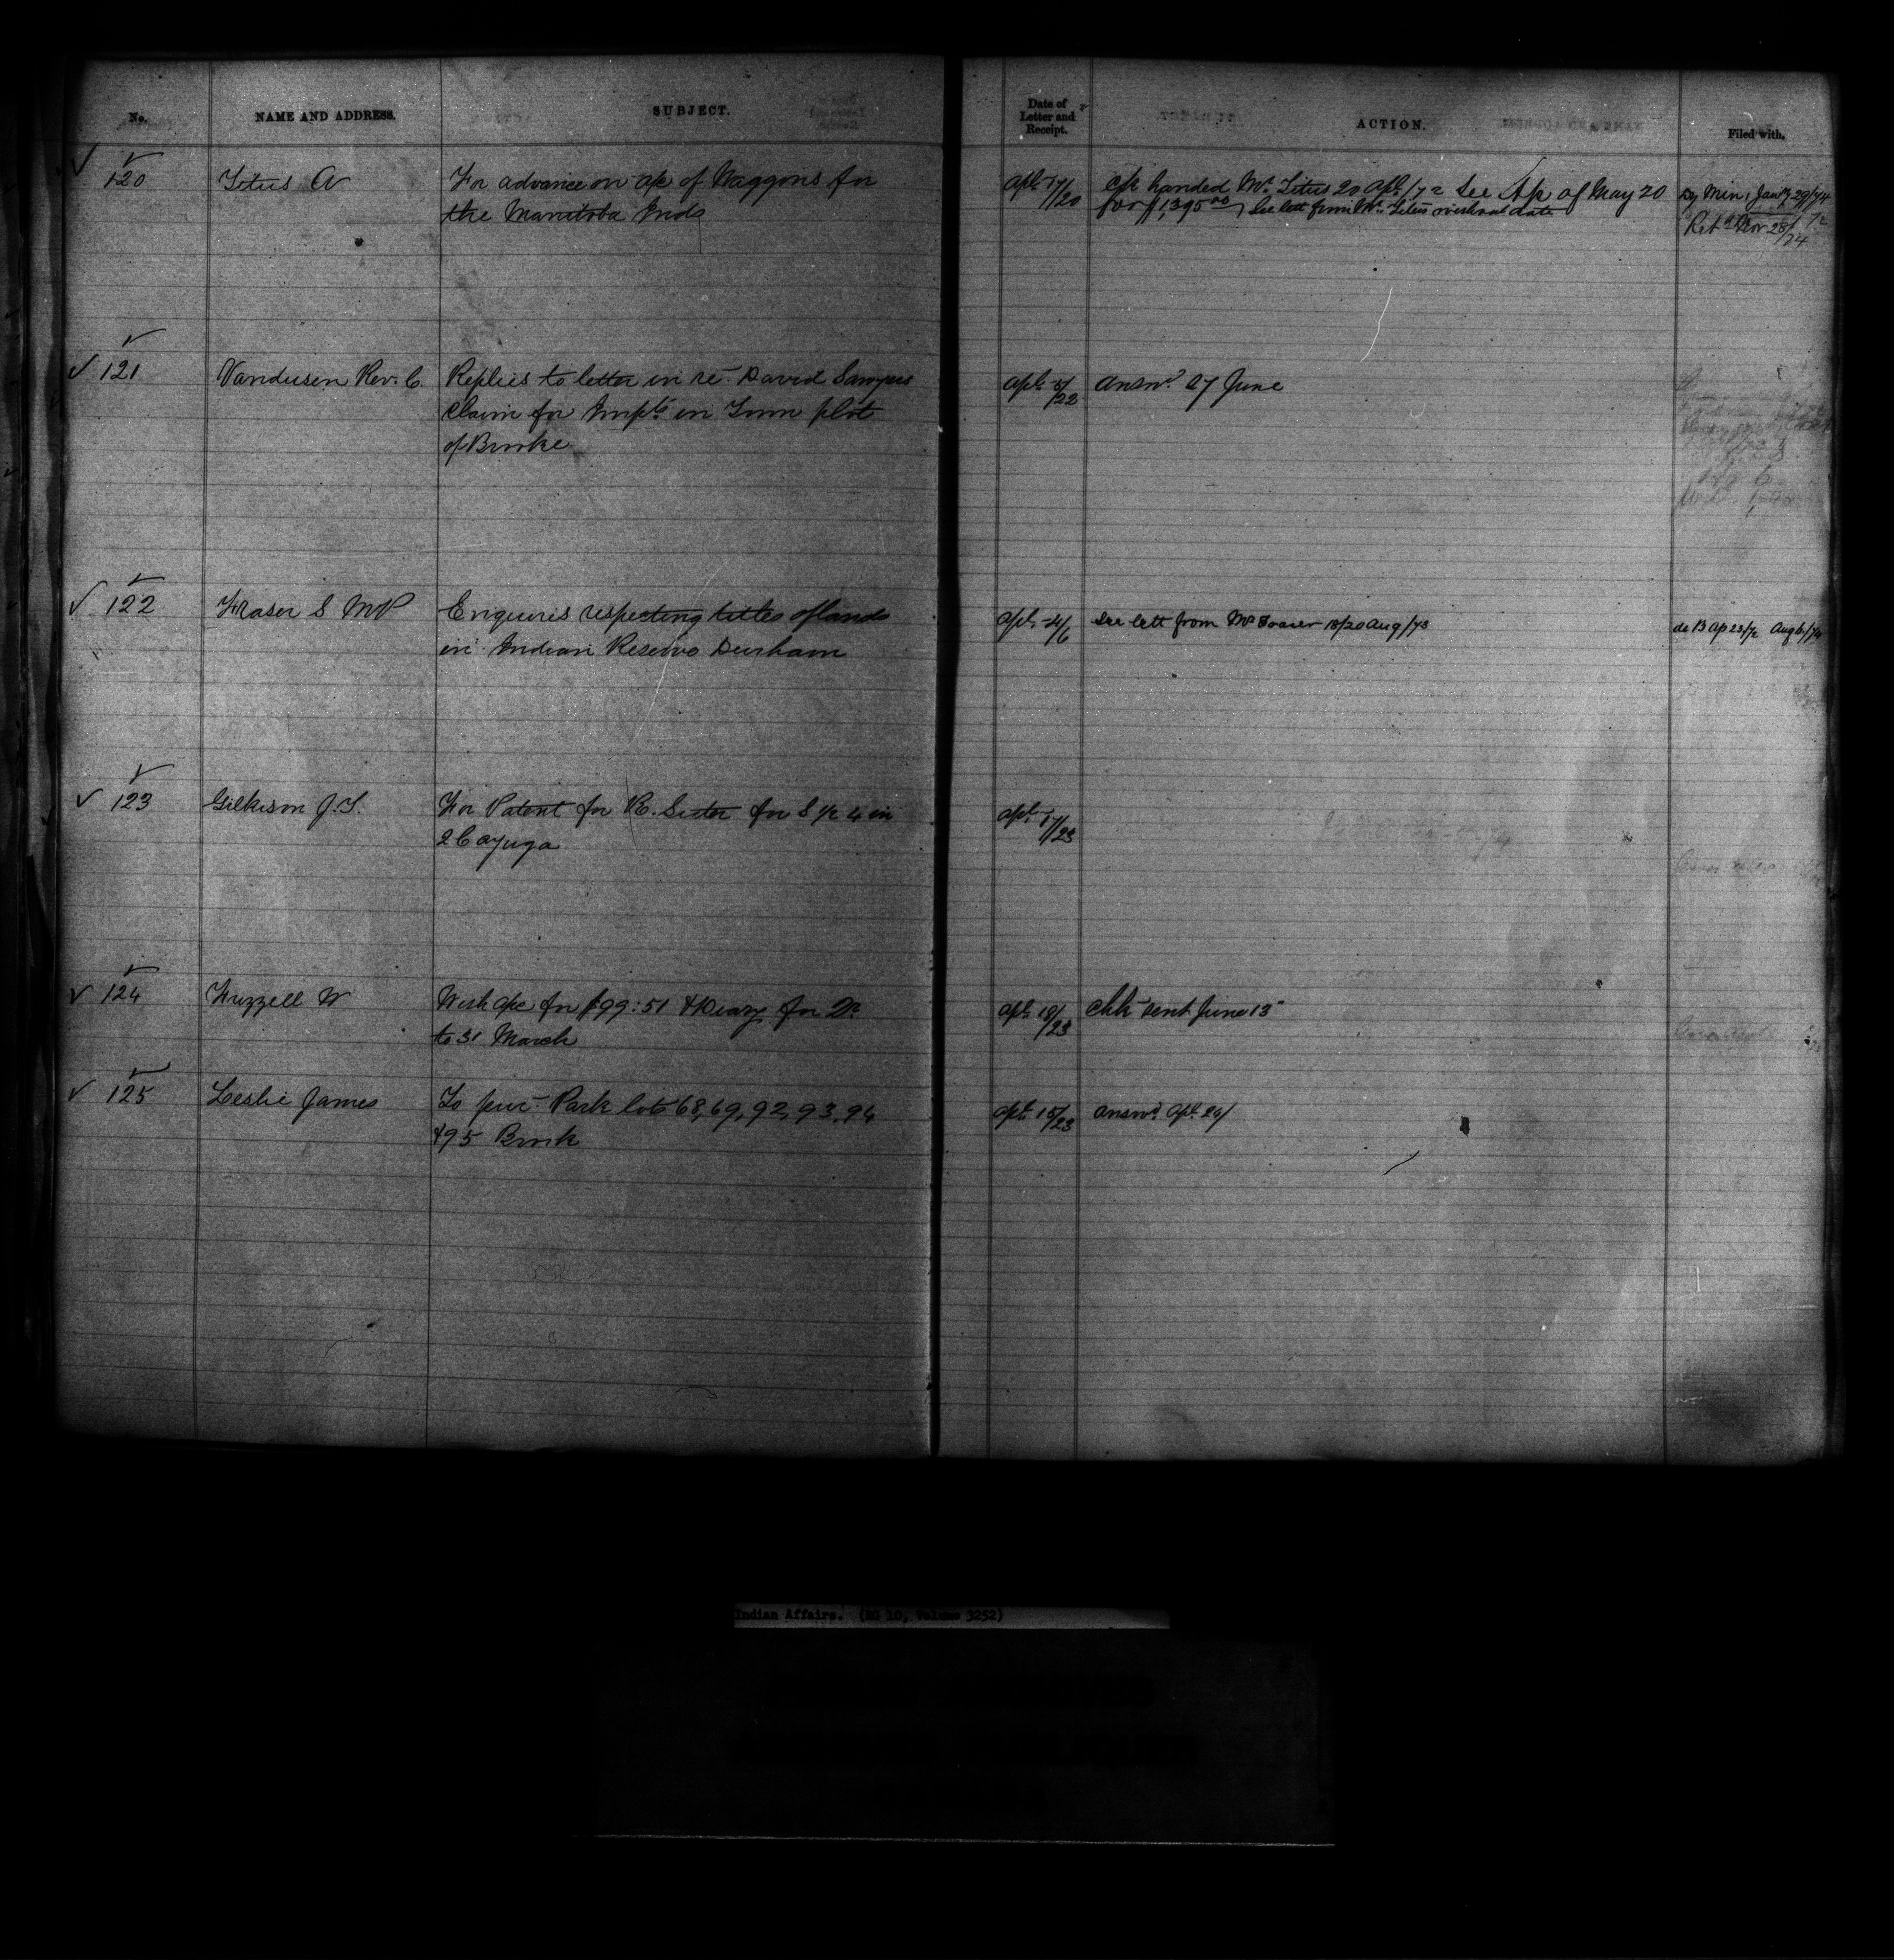 No. NAME AND ADDRESS. SUBJECT. Date of Letter and Receipt. ACTION. Filed with.
120 Titus A For advance on a/c of Waggons for Apl. 17/20 c/k handed Mr. Titus 20 Apl /72 See A/k of May 20 by Min, Jany 29/74
the Manitoba Inds for $1,395.00 See lett from Mr. Titus without date Retd Nov 28/74
121 Vandusen Rev. C. Replies to letter in re David Sawyers Apl. 5/22 answd 27 June
claim for Impts in Town plot
of Brooke
122 Fraser S MP Enquires respecting titles of lands Apl. 4/6 See lett from Mr Fraser 18/20 Aug/73
in Indian Reserve Durham
123 Gilkison J.T. For Patent for R. Sister for S 1/2 4 in Apl. 17/23
2 Cayuga
124 Frizzell W With a/c for $99:51 & Diary for Qr Apl. 18/23 chk sent June 13
to 31 March
125 Leslie James To pur Park lots 68, 69, 92, 93, 94 Apl. 15/23 answd Apl. 29/
& 95 Brook
Indian Affairs. (RG 10, Volume 3252)